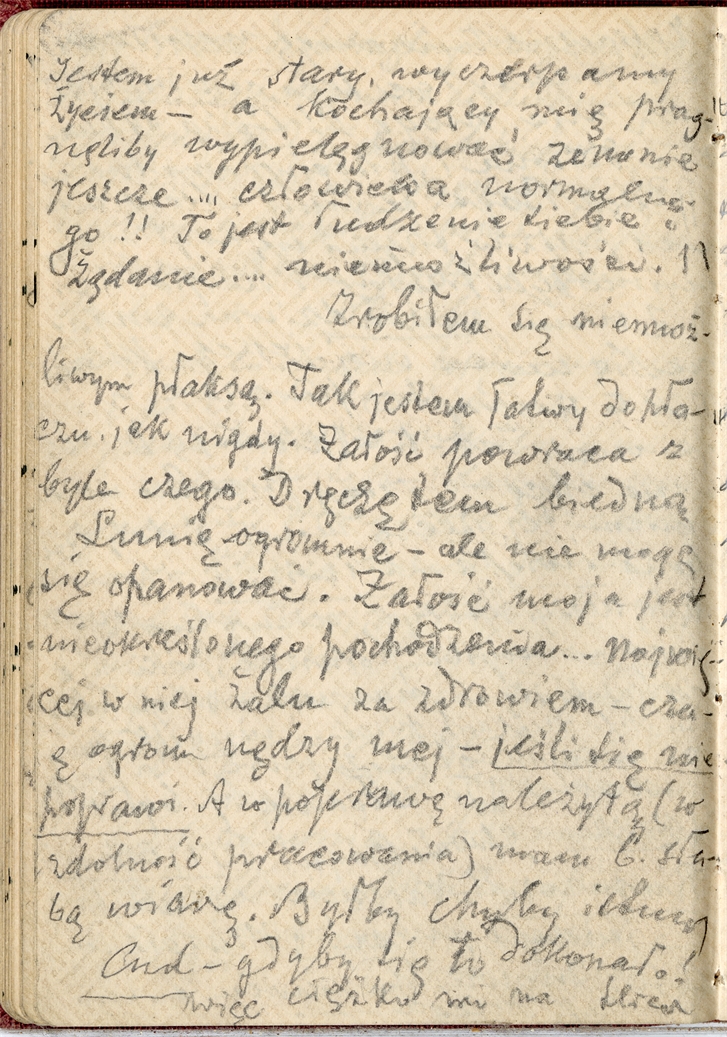 Jestem już stary, wyczerpany
życiem – a kochający mię prag-
nęliby wypielęgnować ze mnie
jeszcze .... człowieka normalne-
go!! To jest łudzenie siebie i
żądanie.... niemożliwości.
Zrobiłem się niemoż-
liwym płaksą. Tak jestem łatwy do pła-
czu. jak nigdy. Żałość powraca z
byle czego. Dręczę tem biedną
Lunię ogromnie – ale nie mogę
się opanować. Żałość moja jest
nieokreślonego pochodzenia... Najwię-
cej w niej żalu za zdrowiem –
ogrom nędzy mej – jeśli się nie
poprawi. A w poprawę należytą (w
zdolność pracowania) mam b. sła-
bą wiarę. Byłby chyba istny
Cud – gdyby się to dokonało!
więc ciężko mi na